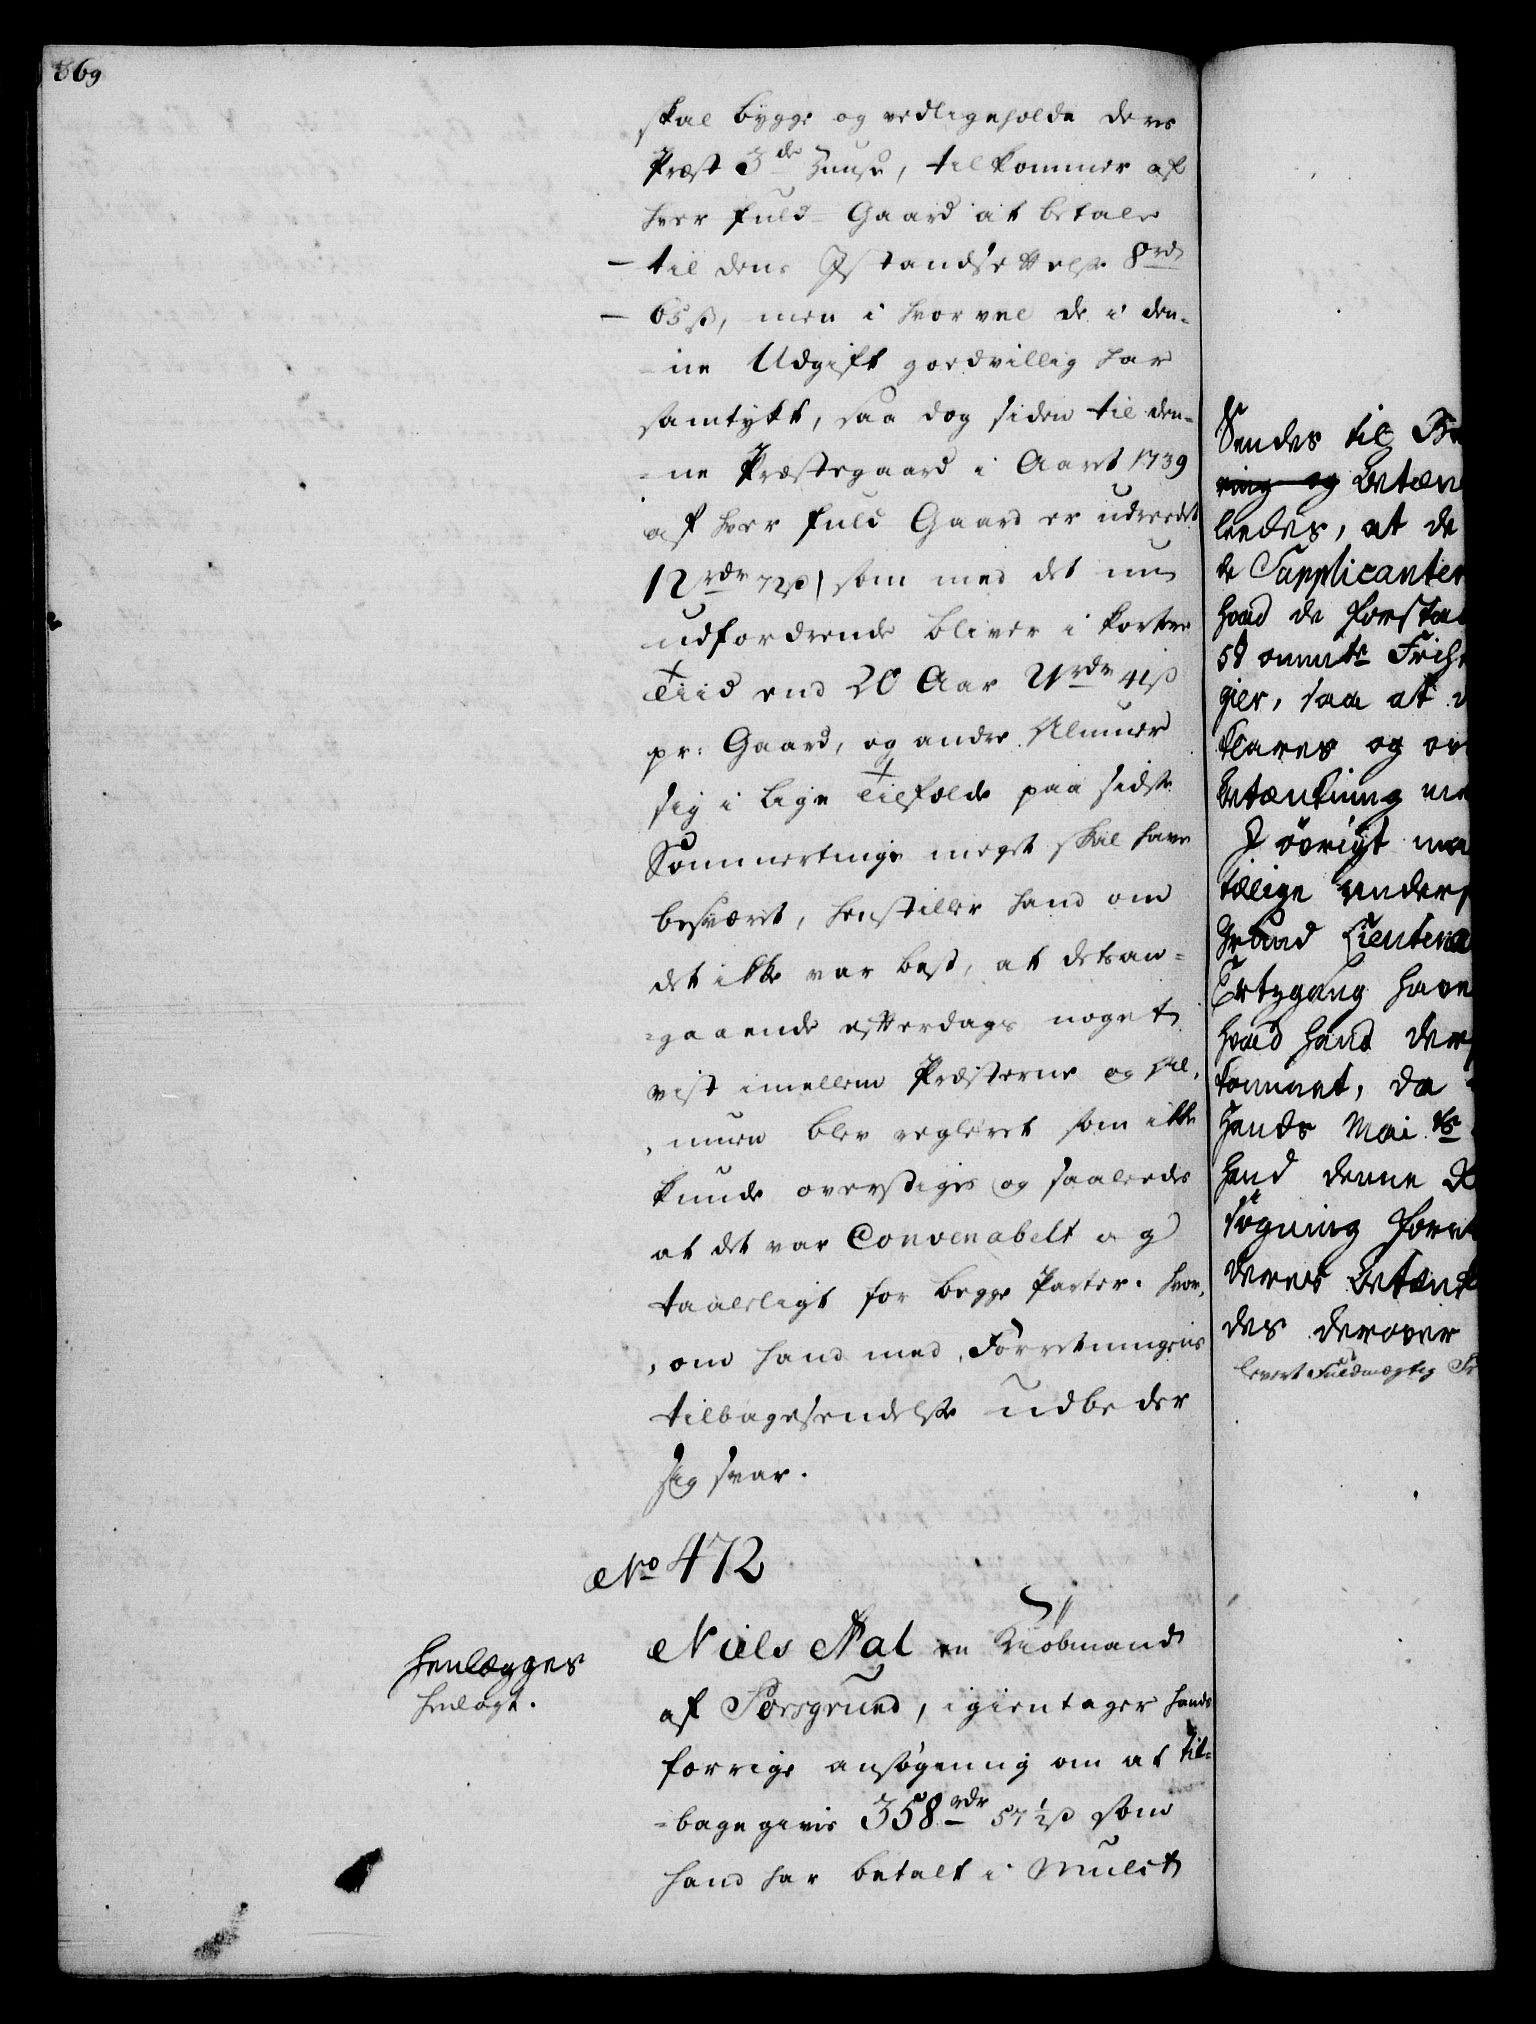 869
skal bygge og vedligeholde deres
Præst 3de Huuse, tilkommer af
hver fuld Gaard at betale
til dens Istandsettelse 8rd
65ß, men i hvorvel de i den-
-ne Udgift goedvillig har
samtykt, saa dog siden til den-
-ne Præstegaard i Aaret 1739
af hver fuld Gaard er udreedet
12rdr 72ß som med det nu
udfordrende bliver i kortere
Tiid end 20 Aar 21rdr 41ß
pr: Gaard, og andre Almuer
sig i lige Tilfælde paa sidste
Sommertinge meget skal have
besværet, henstiller hand om
det ikke var best, at detsan-
-gaaende efterdags noget
vist imellem Præsterne og Al-
-muen blev regleret som ikke
kunde overstiges og saaleedes
at det var Convenabelt og
taaleligt for begge Parter. hvor-
-om hand med Forretningens
tilbagesendelse udbeder
sig svar.
No 472
Niels Aal en Kiøbmand
af Porsgrund, igientager hands
forrige ansøgning om at til-
-bagegives 358rdr 57½ß som
hand har betalt i Mulct
Henlægges
henlagt.
Sendes til
ring og Betæn
leedes, at de
de Supplicanter
hvad de forsta
58 ommte Frih
gier, saa at
klares og
Betænkning me
I øvrigt maa
tillige under
Lieutena
have
hvad hand der
kommet, da
Hands Maits
hand denne
søgning
deres Betænk
des derover
levert Fuldmægtig